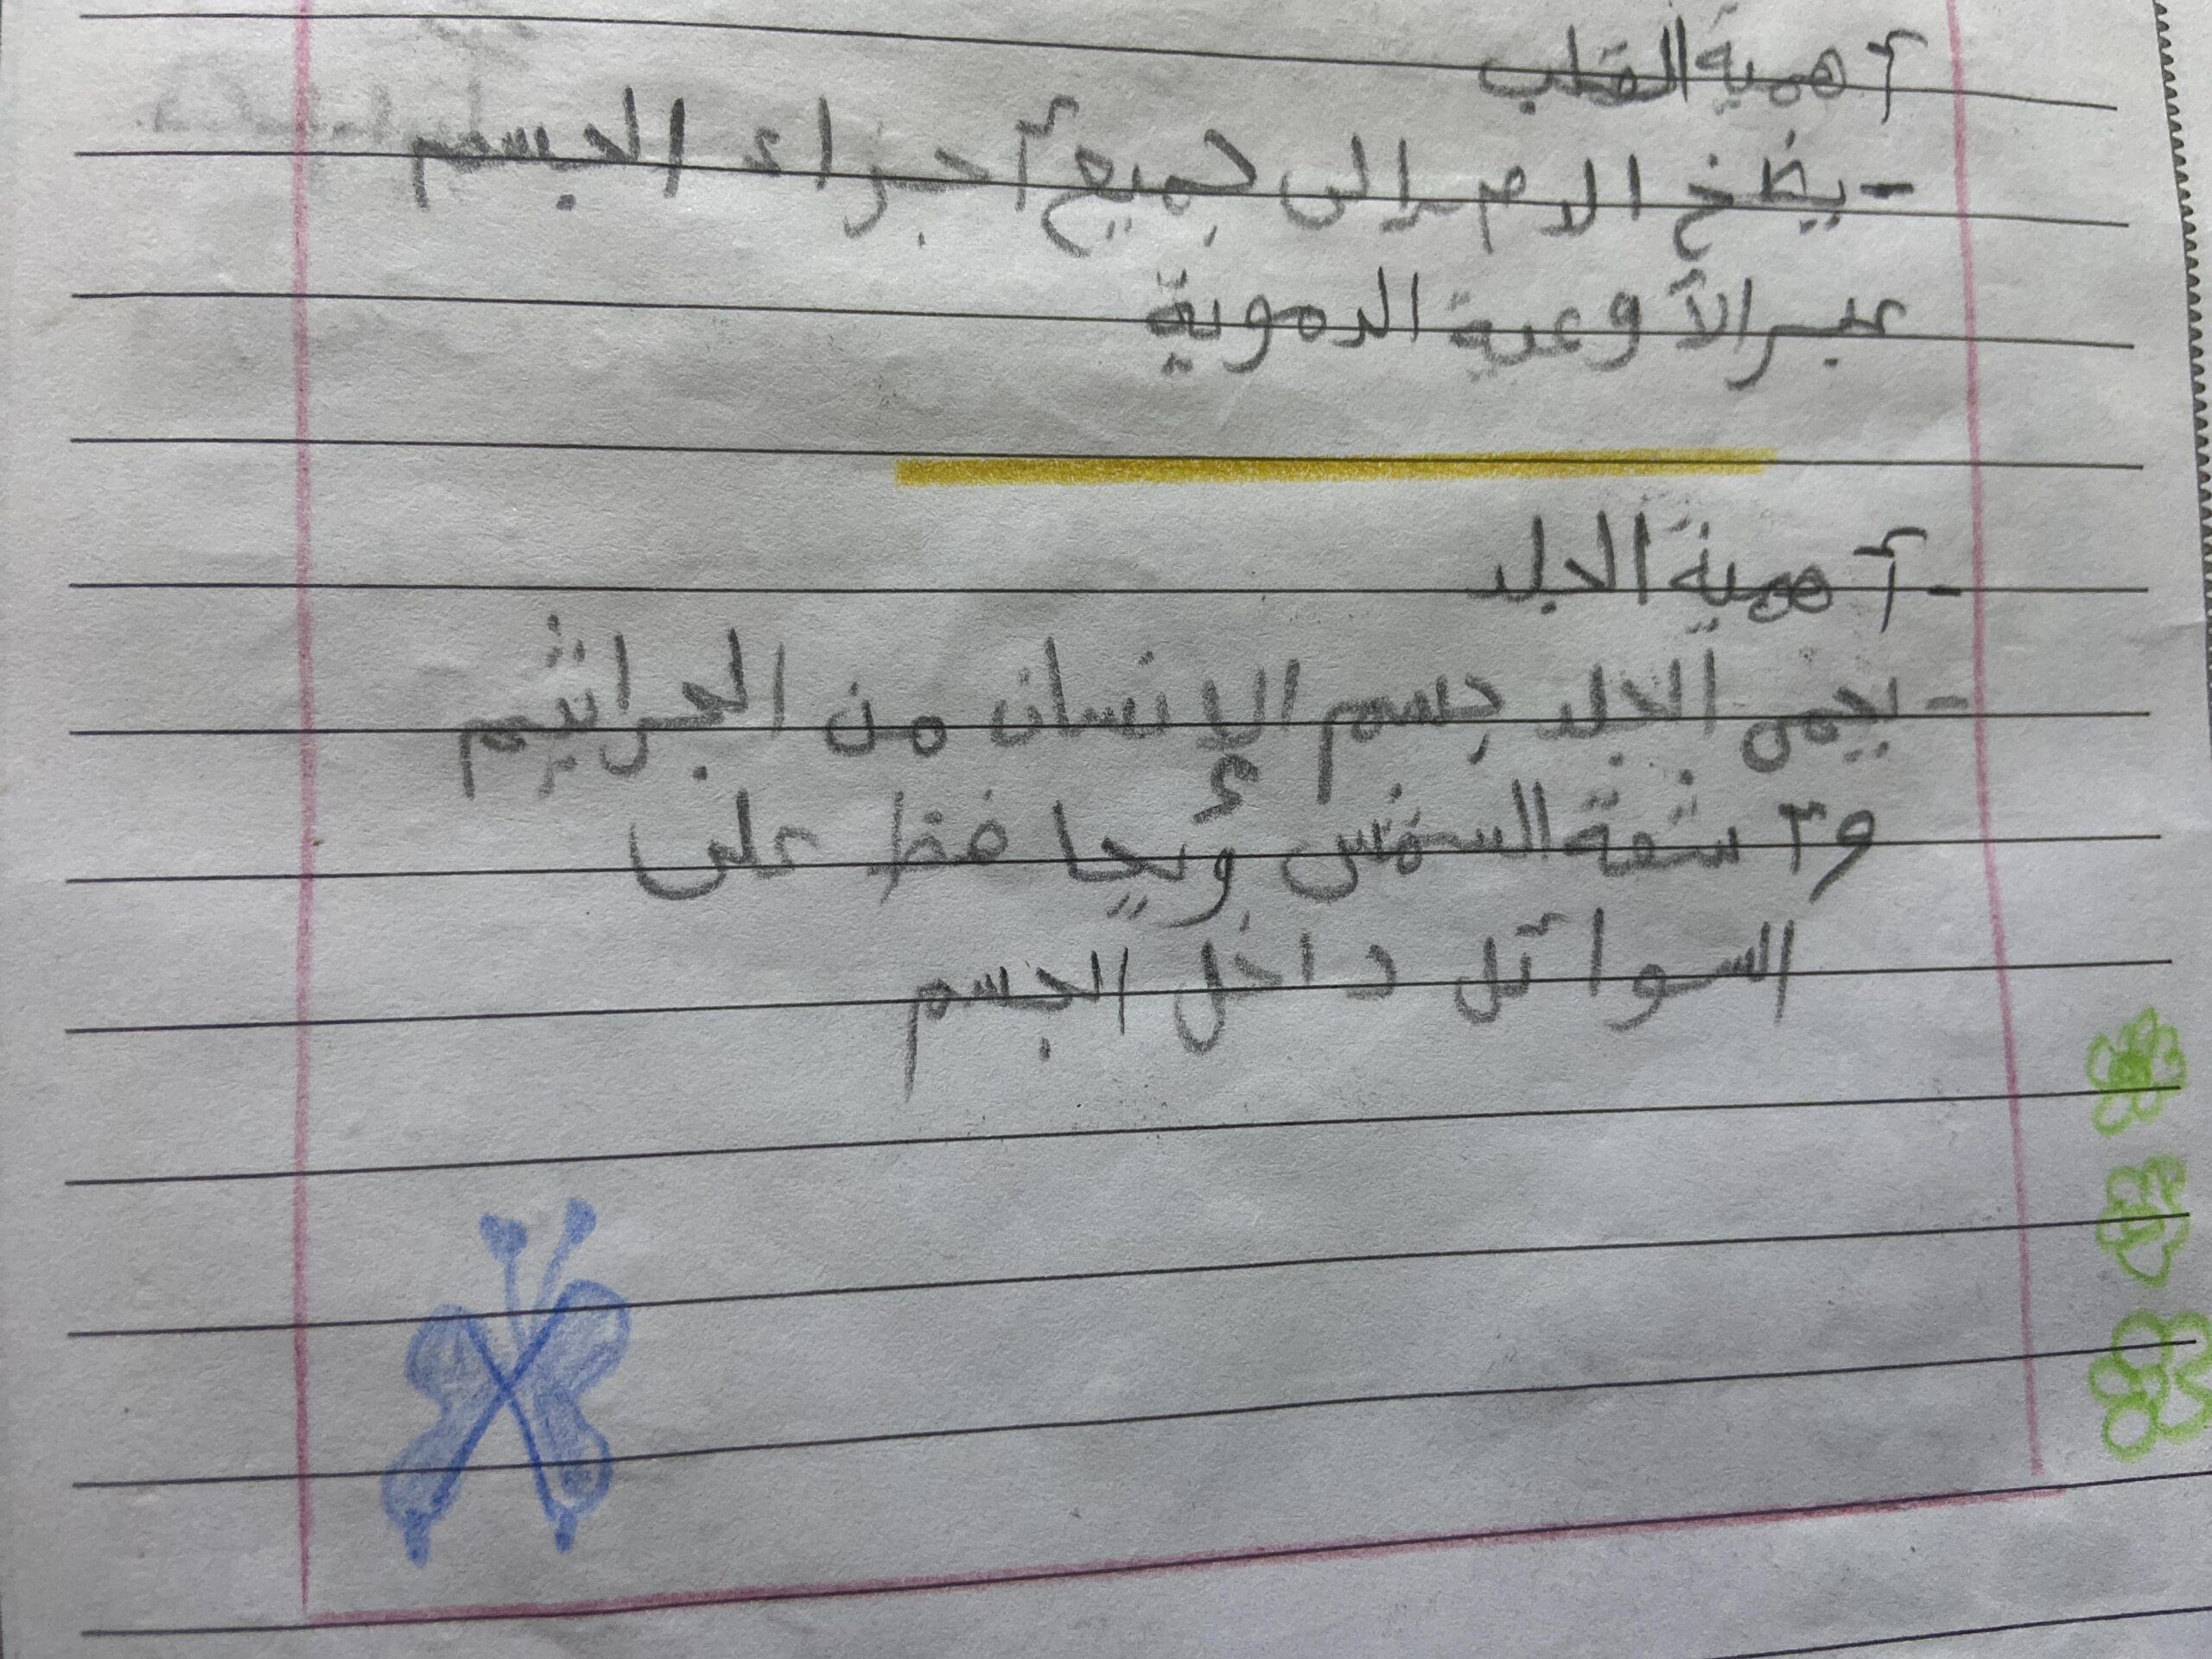 أهمية القلب
- يضخ الدم إلى جميع أجزاء الجسم
عبر الأوعية الدموية
- أهمية الجلد
- يحمى الجلد جسم الإنسان من الجراثيم
وأشعة الشمس ويحافظ على
السوائل داخل الجسم